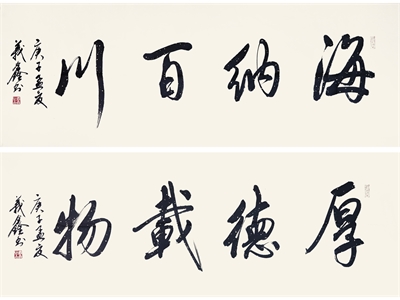 海納百川
庚子孟夏
義鑫書
厚德載物
庚子孟夏
義鑫書